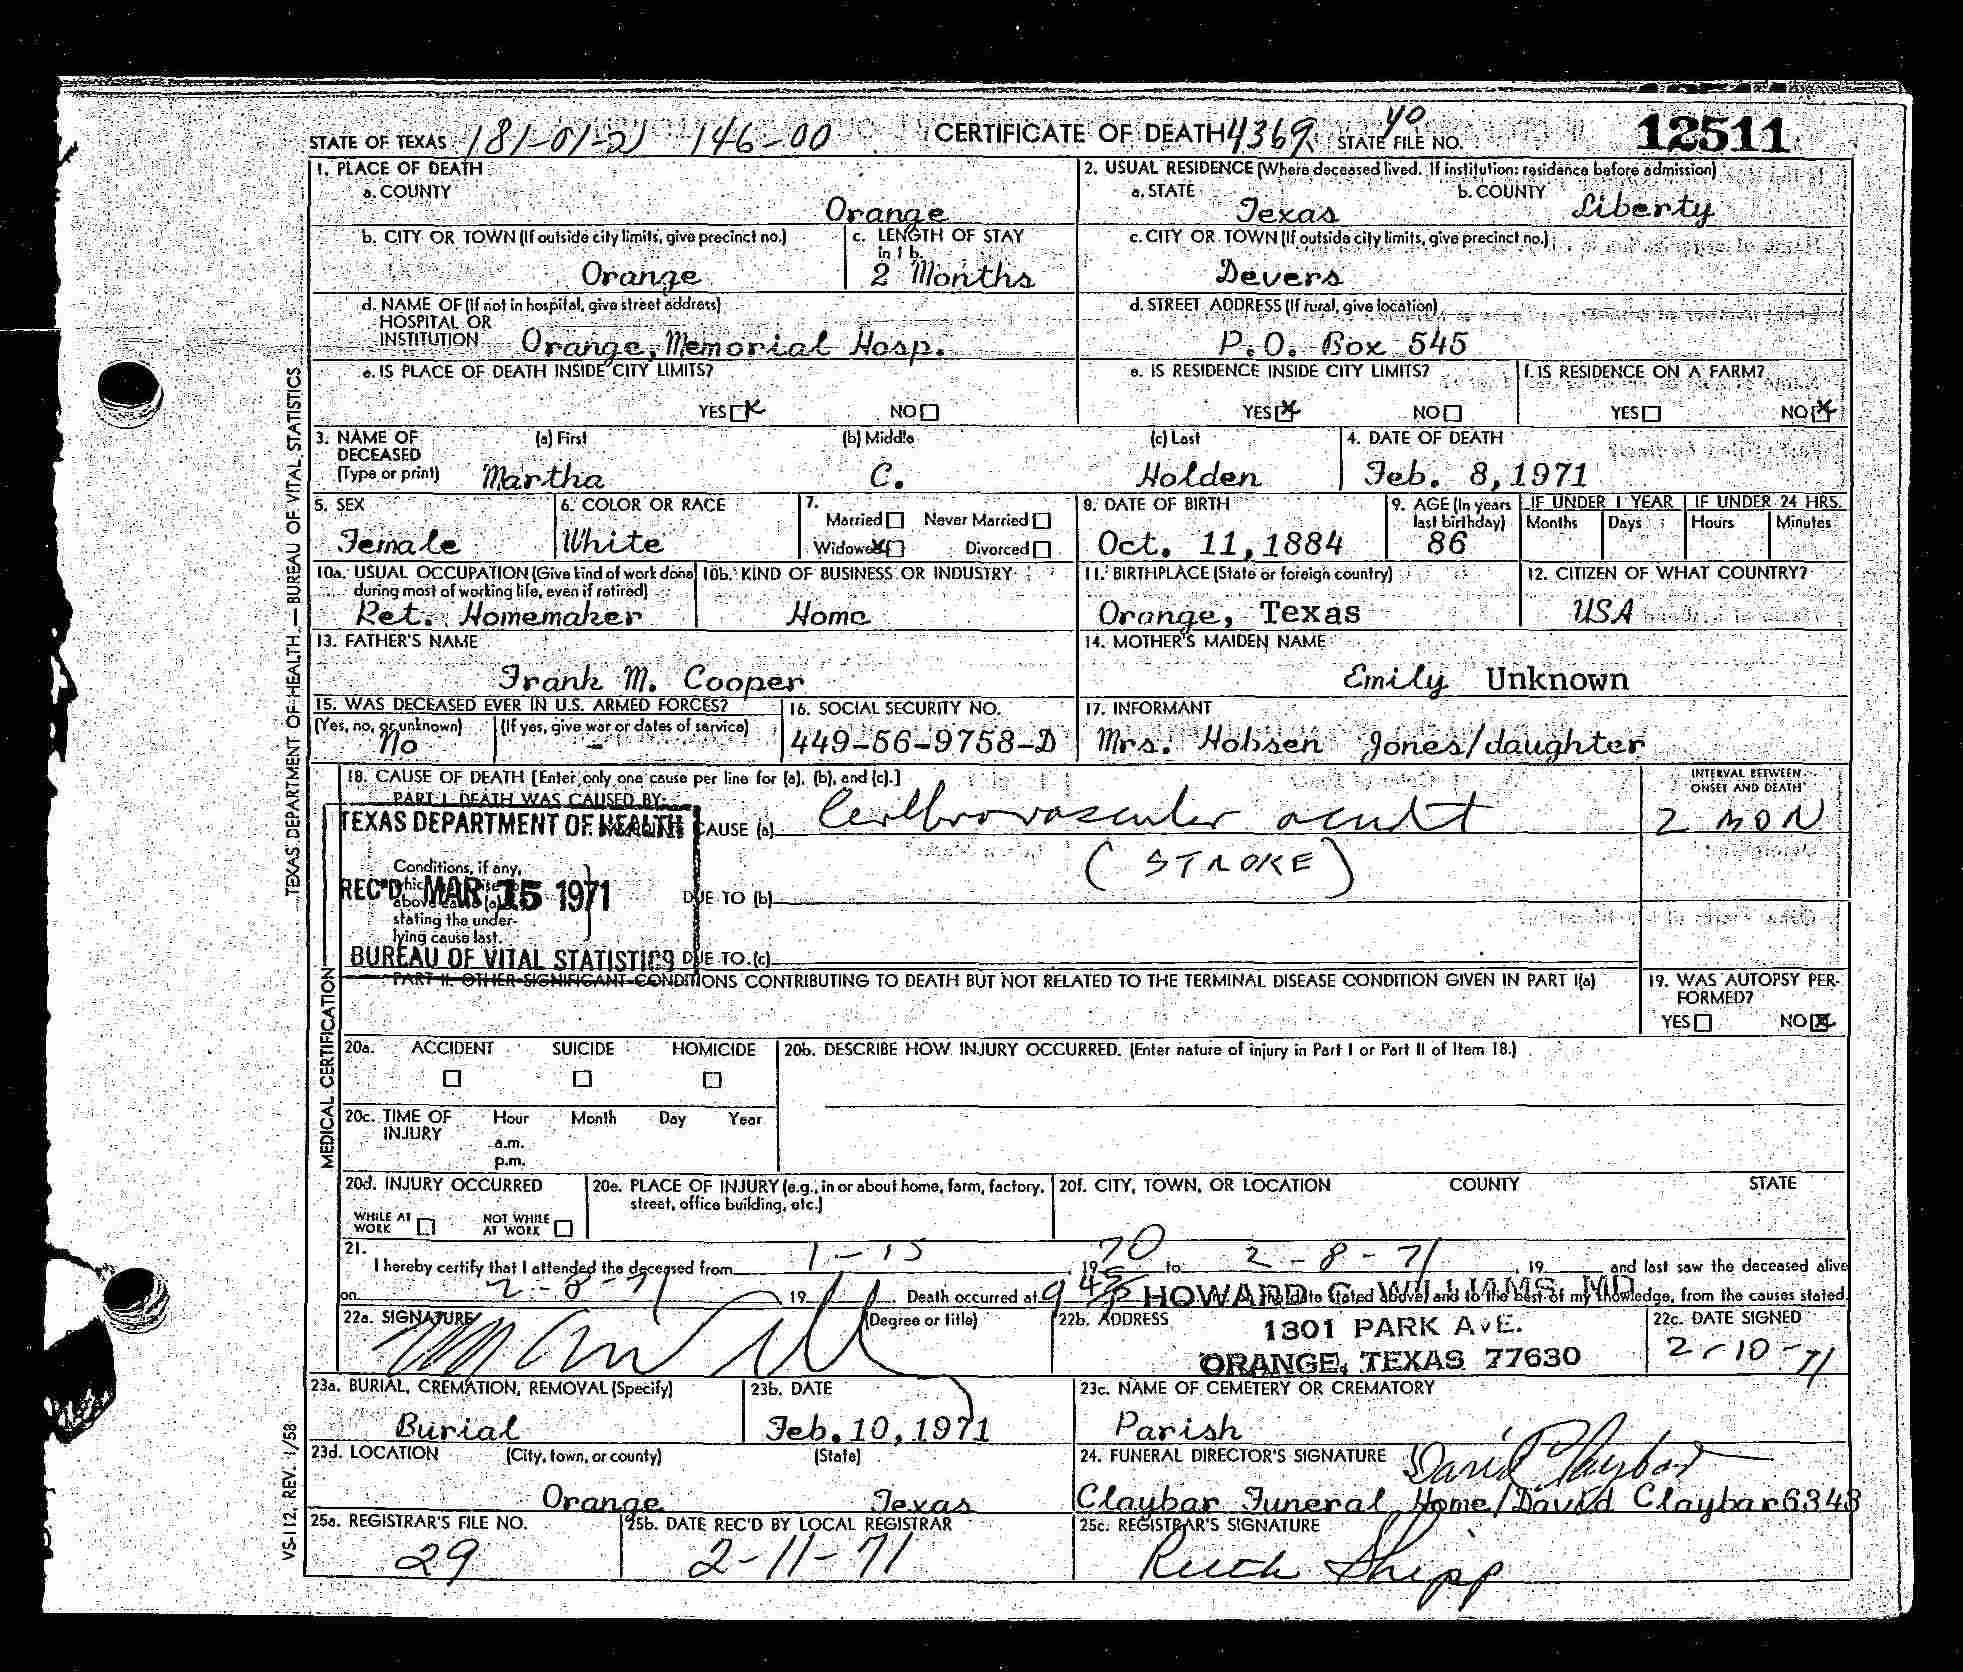 STATE OF TEXAS 181-01-21 146-00 CERTIFICATE OF DEATH 4369 STATE FILE NO. 40 12511
1. PLACE OF DEATH
a. COUNTY
Orange
2. USUAL RESIDENCE (Where deceased lived. If institution: residence before admission)
a. STATE Texas b. COUNTY Liberty
b. CITY OR TOWN (If outside city limits, give precinct no.)
Orange
c. LENGTH OF STAY in 1 b.
2 Months
c. CITY OR TOWN (If outside city limits, give precinct no.)
Devers
d. NAME OF (If not in hospital, give street address)
HOSPITAL OR
INSTITUTION Orange, Memorial Hosp.
d. STREET ADDRESS (If rural, give location)
P.O. Box 545
e. IS PLACE OF DEATH INSIDE CITY LIMITS?
YES NO
e. IS RESIDENCE INSIDE CITY LIMITS?
YES NO
f. IS RESIDENCE ON A FARM?
YES NO
3. NAME OF DECEASED (Type or print)
(a) First (b) Middle (c) Last
Martha C. Holden
4. DATE OF DEATH
Feb. 8, 1971
5. SEX
Female
6. COLOR OR RACE
White
7.
Married Never Married
Widowed Divorced
8. DATE OF BIRTH
Oct. 11, 1884
9. AGE (In years last birthday)
86
IF UNDER 1 YEAR
Months Days
IF UNDER 24 HRS.
Hours Minutes
10a. USUAL OCCUPATION (Give kind of work done during most of working life, even if retired)
Ret. Homemaker
10b. KIND OF BUSINESS OR INDUSTRY
Home
11. BIRTHPLACE (State or foreign country)
Orange, Texas
12. CITIZEN OF WHAT COUNTRY?
USA
13. FATHER'S NAME
Frank M. Cooper
14. MOTHER'S MAIDEN NAME
Emily Unknown
15. WAS DECEASED EVER IN U.S. ARMED FORCES?
(Yes, no, or unknown) (If yes, give war or dates of service)
No -
16. SOCIAL SECURITY NO.
449-56-9758-D
17. INFORMANT
Mrs. Hobsen Jones/daughter
18. CAUSE OF DEATH (Enter only one cause per line for (a), (b), and (c).)
INTERVAL BETWEEN ONSET AND DEATH
PART I. DEATH WAS CAUSED BY:
TEXAS DEPARTMENT OF HEALTH
CAUSE (a) Cerebrovascular 2 MON
(STROKE)
Conditions, if any,
above cause (a)
stating the under-
lying cause last.
REC'D MAR 15 1971
DUE TO (b)
BUREAU OF VITAL STATISTICS
DUE TO (c)
PART II. OTHER SIGNIFICANT CONDITIONS CONTRIBUTING TO DEATH BUT NOT RELATED TO THE TERMINAL DISEASE CONDITION GIVEN IN PART I(a)
19. WAS AUTOPSY PER-
FORMED?
YES NO
20a. ACCIDENT SUICIDE HOMICIDE
20b. DESCRIBE HOW INJURY OCCURRED. (Enter nature of injury in Part I or Part II of Item 18.)
20c. TIME OF INJURY
Hour Month Day Year
a.m.
p.m.
20d. INJURY OCCURRED
WHILE AT WORK NOT WHILE AT WORK
20e. PLACE OF INJURY (e.g., in or about home, farm, factory, street, office building, etc.)
20f. CITY, TOWN, OR LOCATION COUNTY STATE
21.
I hereby certify that I attended the deceased from 1-15, 1970 to 2-8-71, 19 and last saw the deceased alive
on 2-8-71, 19 Death occurred at 9 45 P HOWARD C. WILLIAMS, MD and to the best of my knowledge, from the causes stated.
22a. SIGNATURE (Degree or title)
22b. ADDRESS
1301 PARK AVE.
ORANGE, TEXAS 77630
22c. DATE SIGNED
2-10-71
23a. BURIAL, CREMATION, REMOVAL (Specify)
Burial
23b. DATE
Feb. 10, 1971
23c. NAME OF CEMETERY OR CREMATORY
Parish
23d. LOCATION (City, town, or county) (State)
Orange Texas
24. FUNERAL DIRECTOR'S SIGNATURE David Claybar
Claybar Funeral Home/David Claybar 6343
25a. REGISTRAR'S FILE NO.
29
25b. DATE REC'D BY LOCAL REGISTRAR
2-11-71
25c. REGISTRAR'S SIGNATURE
Ruth Shipp
TEXAS DEPARTMENT OF HEALTH — BUREAU OF VITAL STATISTICS
MEDICAL CERTIFICATION
VS-112, REV. 1/58